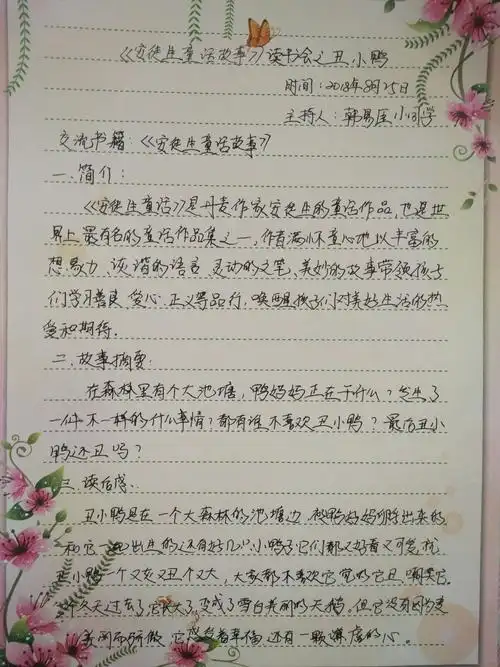 《安徒生童话故事》读书会之丑小鸭
时间：2018年8月25日
主持人：韩易 小同学
交流书籍：《安徒生童话故事》
一、简介：
《安徒生童话》是丹麦作家安徒生的童话作品，也是世
界上最有名的童话作品集之一，作者满怀童心地以丰富的
想象力、诙谐的语言、灵动的文笔、美妙的故事带领孩子
们学习善良、爱心、正义等品行，唤醒孩子们对美好生活的热
爱和期待。
二、故事摘要：
在森林里有个大池塘，鸭妈妈正在干什么？发生了
一件不一样的什么事情？都有谁不喜欢丑小鸭？最后丑小
鸭还丑吗？
三、读后感
丑小鸭是在一个大森林的池塘边 被鸭妈妈孵出来的
和它一起出生的还有好几个小鸭子它们都又好看又可爱，
丑小鸭一个又灰又丑个又大，大家都不喜欢它觉得它丑，嘲笑它。
个冬天过去了它长大了，变成了雪白美丽的天鹅，但它没有因为变
美丽而骄傲 它感到幸福 还有一颗 的心。